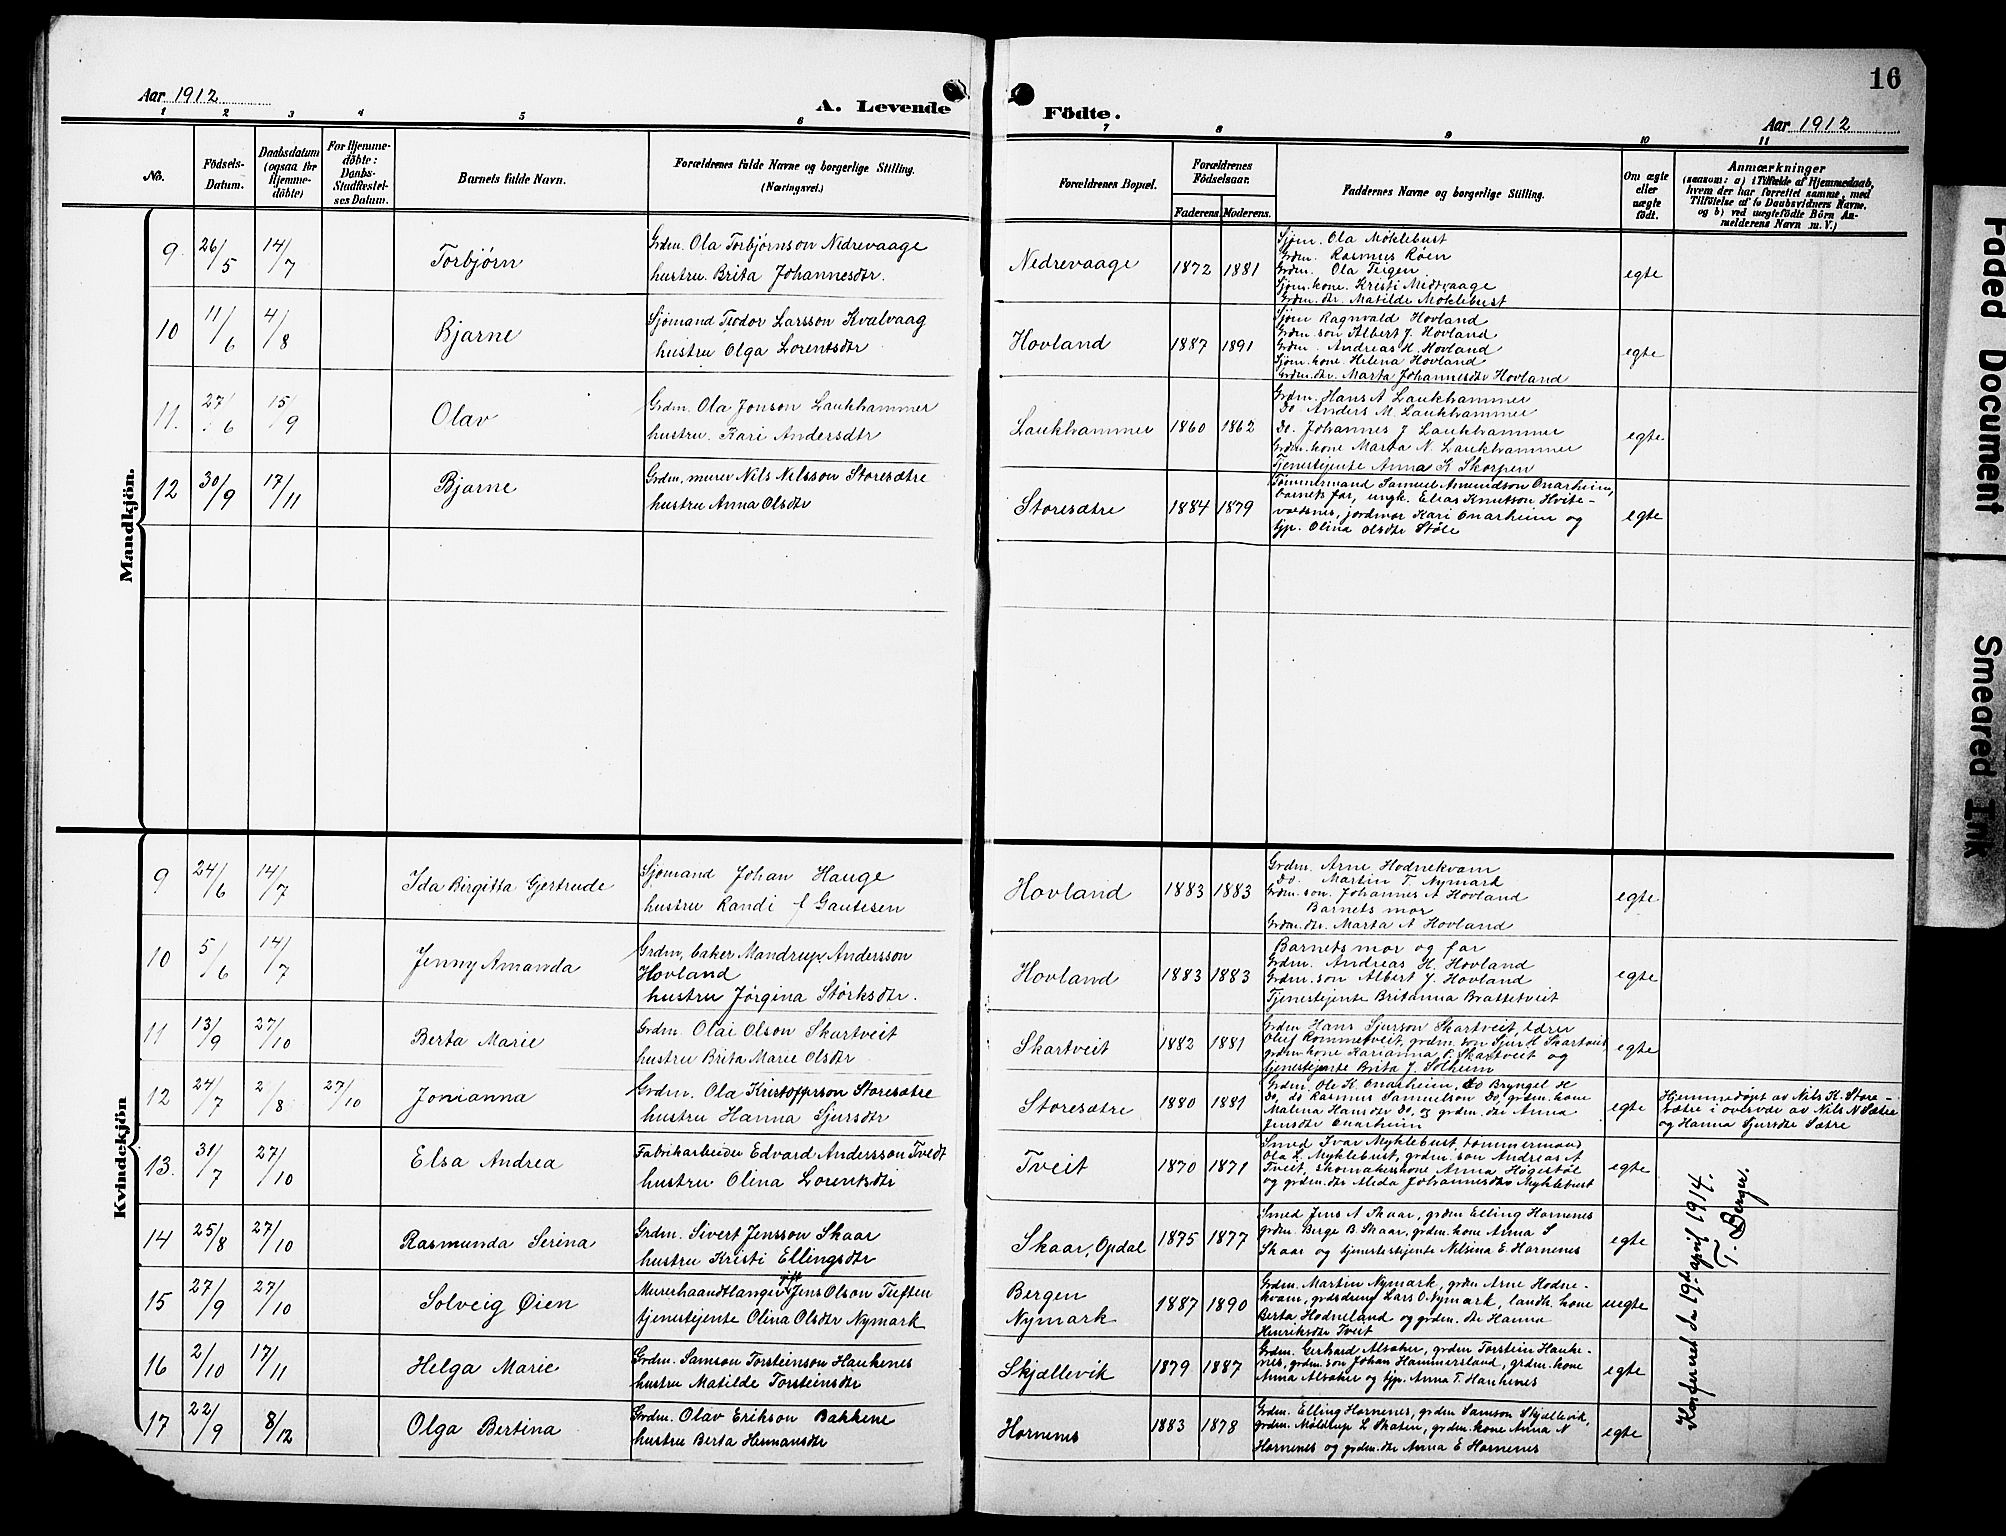 Aar 1912
A. Levende Födte.
Aar 1912
16
1 2 3 4 5 6 7 8 9 10 11
No.
Födsels-
Datum.
Daabsdatum
(ogsaa for
Hjemme-
döbte)
For Hjemme-
döbte:
Daabs-
Stadfæstel-
ses Datum.
Barnets fulde Navn.
Forældrenes fulde Navne og borgerlige Stilling.
(Næringsvei.)
Forældrenes Bopæl.
Forældrenes
Födselsaar.
Faderens. Moderens.
Faddernes Navne og borgerlige Stilling.
Om ægte
eller
uægte
født.
Anmærkninger
(saasom: a) i Tilfælde af Hjemmedaab,
hvem der har forrettet samme, med
Tilföielse af to Daabsvidners Navne,
og b) ved uægtefödte Börn An-
melderens Navn m. V.)
Mandkjön.
9 26/5 14/7 Torbjørn
Grdm. Ola Torbjørnson Nedrevaage
hustru Brita Johannesdtr.
Nedrevaage 1872 1881
Sjøm. Ola Møklebust
Grdm. Rasmus Røen
Grdm. Ola Teigen
Sjøm. kone Kristi Midtvaage
Grdm. dtr. Matilde Møklebust
egte
10 11/6 4/8 Bjarne
Sjømand Teodor Larsson Kvalvaag
hustru Olga Lorentsdtr
Hovland 1887 1891
Sjøm Ragnvald Hovland
Grdm son Albert J. Hovland
Grdm. Andreas H. Hovland
Sjøm. kone Helena Hovland
Grdm. dtr. Marta Johannesdtr Hovland
egte
11. 27/6 15/9 Olav
Grdm. Ola Jonson Laukhammer
hustru. Kari Andersdtr
Laukhammer 1860 1862
Grdm. Hans A Laukhammer
Do Anders M. Laukhammer
Do. Johannes J Laukhammer
Grdm. kone Marta N. Laukhammer
Tjenestejente Anna K Skorpen
egte
12 30/9 17/11 Bjarne
Grdm. murer Nils Nilsson Storesætre
hustru Anna Olsdtr
Storesætre 1884 1879
Tømmermand Samuel Amundson Onarheim,
barnets far, ungk. Elias Knutson Hvite-
vatsnes, jordmor Kari Onarheim og
tjp. Olina Olsdtr Støle
egte
Kvindekjön
9 24/6 14/7 Ida Birgitta Gjertrude
Sjømand Johan Hauge
hustru Randi f Gautesen
Hovland 1883 1883
Grdm. Arne Hodnekvam
Do. Martin T. Nymark
Grdm. son Johannes A Hovland
Barnets mor
Grdm. dtr. Marta A Hovland
egte
10 5/6 14/7 Jenny Amanda
Grdm, baker Mandrup Andersson
Hovland
hustru Jørgina Størksdtr.
Hovland 1883 1883
Barnets mor og far
Grdm. Andreas H. Hovland
Grdm. son Albert J. Hovland
Tjenestejente Britanna Brattetveit
egte
11 13/9 27/10 Berta Marie
Grdm. Olai Olson Skartveit
hustru Brita Marie Olsdtr
Skartveit 1882 1881
Grdm Hans Sjurson Skartveit, lærer
Oluf Rommetveit, grdm. son Sjur H Skartveit,
grdm. kone Karianna P. Skartveit og
tjenestejente Brita J. Solheim
egte
12 24/7 2/8 27/10 Jonianna
Grdm. Ola Kristofferson Storesætre
hustru Hanna Sjursdtr
Storesætre 1880 1881
Grdm. Ole K. Onarheim, do Bryngel H
Do, do Rasmus Samuelson Do, grdm. kone
Malena Hansdtr Do. og grdm. dtr Anna
Jensdtr Onarheim
egte
Hjemmedøpt av Nils K. Store-
sætre i overvær av Nils N Sætre
og Hanna Sjursdtr Sætre
13. 31/7 27/10 Elsa Andrea
Fabrikarbeider Edvard Andersson Tvedt
hustru Olina Lorentsdtr
Tveit 1870 1871
Smed Ivar Myklebust, tømmermand
Ola L. Myklebust, grdm. son Andreas A
Tveit, skomakerkone Anna Høgestøl
og grdm. dtr Alida Johannesdtr Myklebust
egte
14 25/8 27/10 Rasmunda Serina
Grdm. Sivert Jensson Skaar
hustru Kristi Ellingsdtr
Skaar, Opdal 1875 1877
Smed Jens A Skaar, grdm Elling Hornenes
grdm. Berge B. Skaar, grdm. kone Anna S
Skaar og tjenestejente Nilsina E. Hornenes
egte
15 27/9 27/10 Solveig Øien
Murerhaandtlanger gift Jens Olson Tuften
tjenestejente Olina Olsdtr Nymark
Bergen
Nymark
1887 1890
Grdm. Martin Nymark, grdm Arne Hodne-
kvam, grdsdreng Lars O. Nymark, landh. kone
Berta Hodneland og grdm. dtr Hanna
Henriksdtr Tveit
uegte
16 2/10 17/11 Helga Marie
Grdm. Samson Torsteinson Haukenes
hustru Matilde Torsteinsdtr
Skjællevik 1879 1887
Grdm. Gerhard Alsaker, grdm Torstein Hauke-
nes, grdm. son Johan Hammersland, grdm. kone
Anna Alsaker og tjp. Anna T. Haukenes
egte
17 22/9 8/12 Olga Bertina
Grdm. Olav Erikson Bakkene
hustru Berta Hermansdtr
Hornenes 1883 1878
Grdm. Elling Hornenes, grdm Samson Skjællevik,
grdm. Møldrup L Skaten, grdm. kone Anna N
Hornenes og grdm. dtr Anna E Hornenes
egte
Konferert da 19de april 1914.
T. Berger.
Faded Document
Smeared Ink